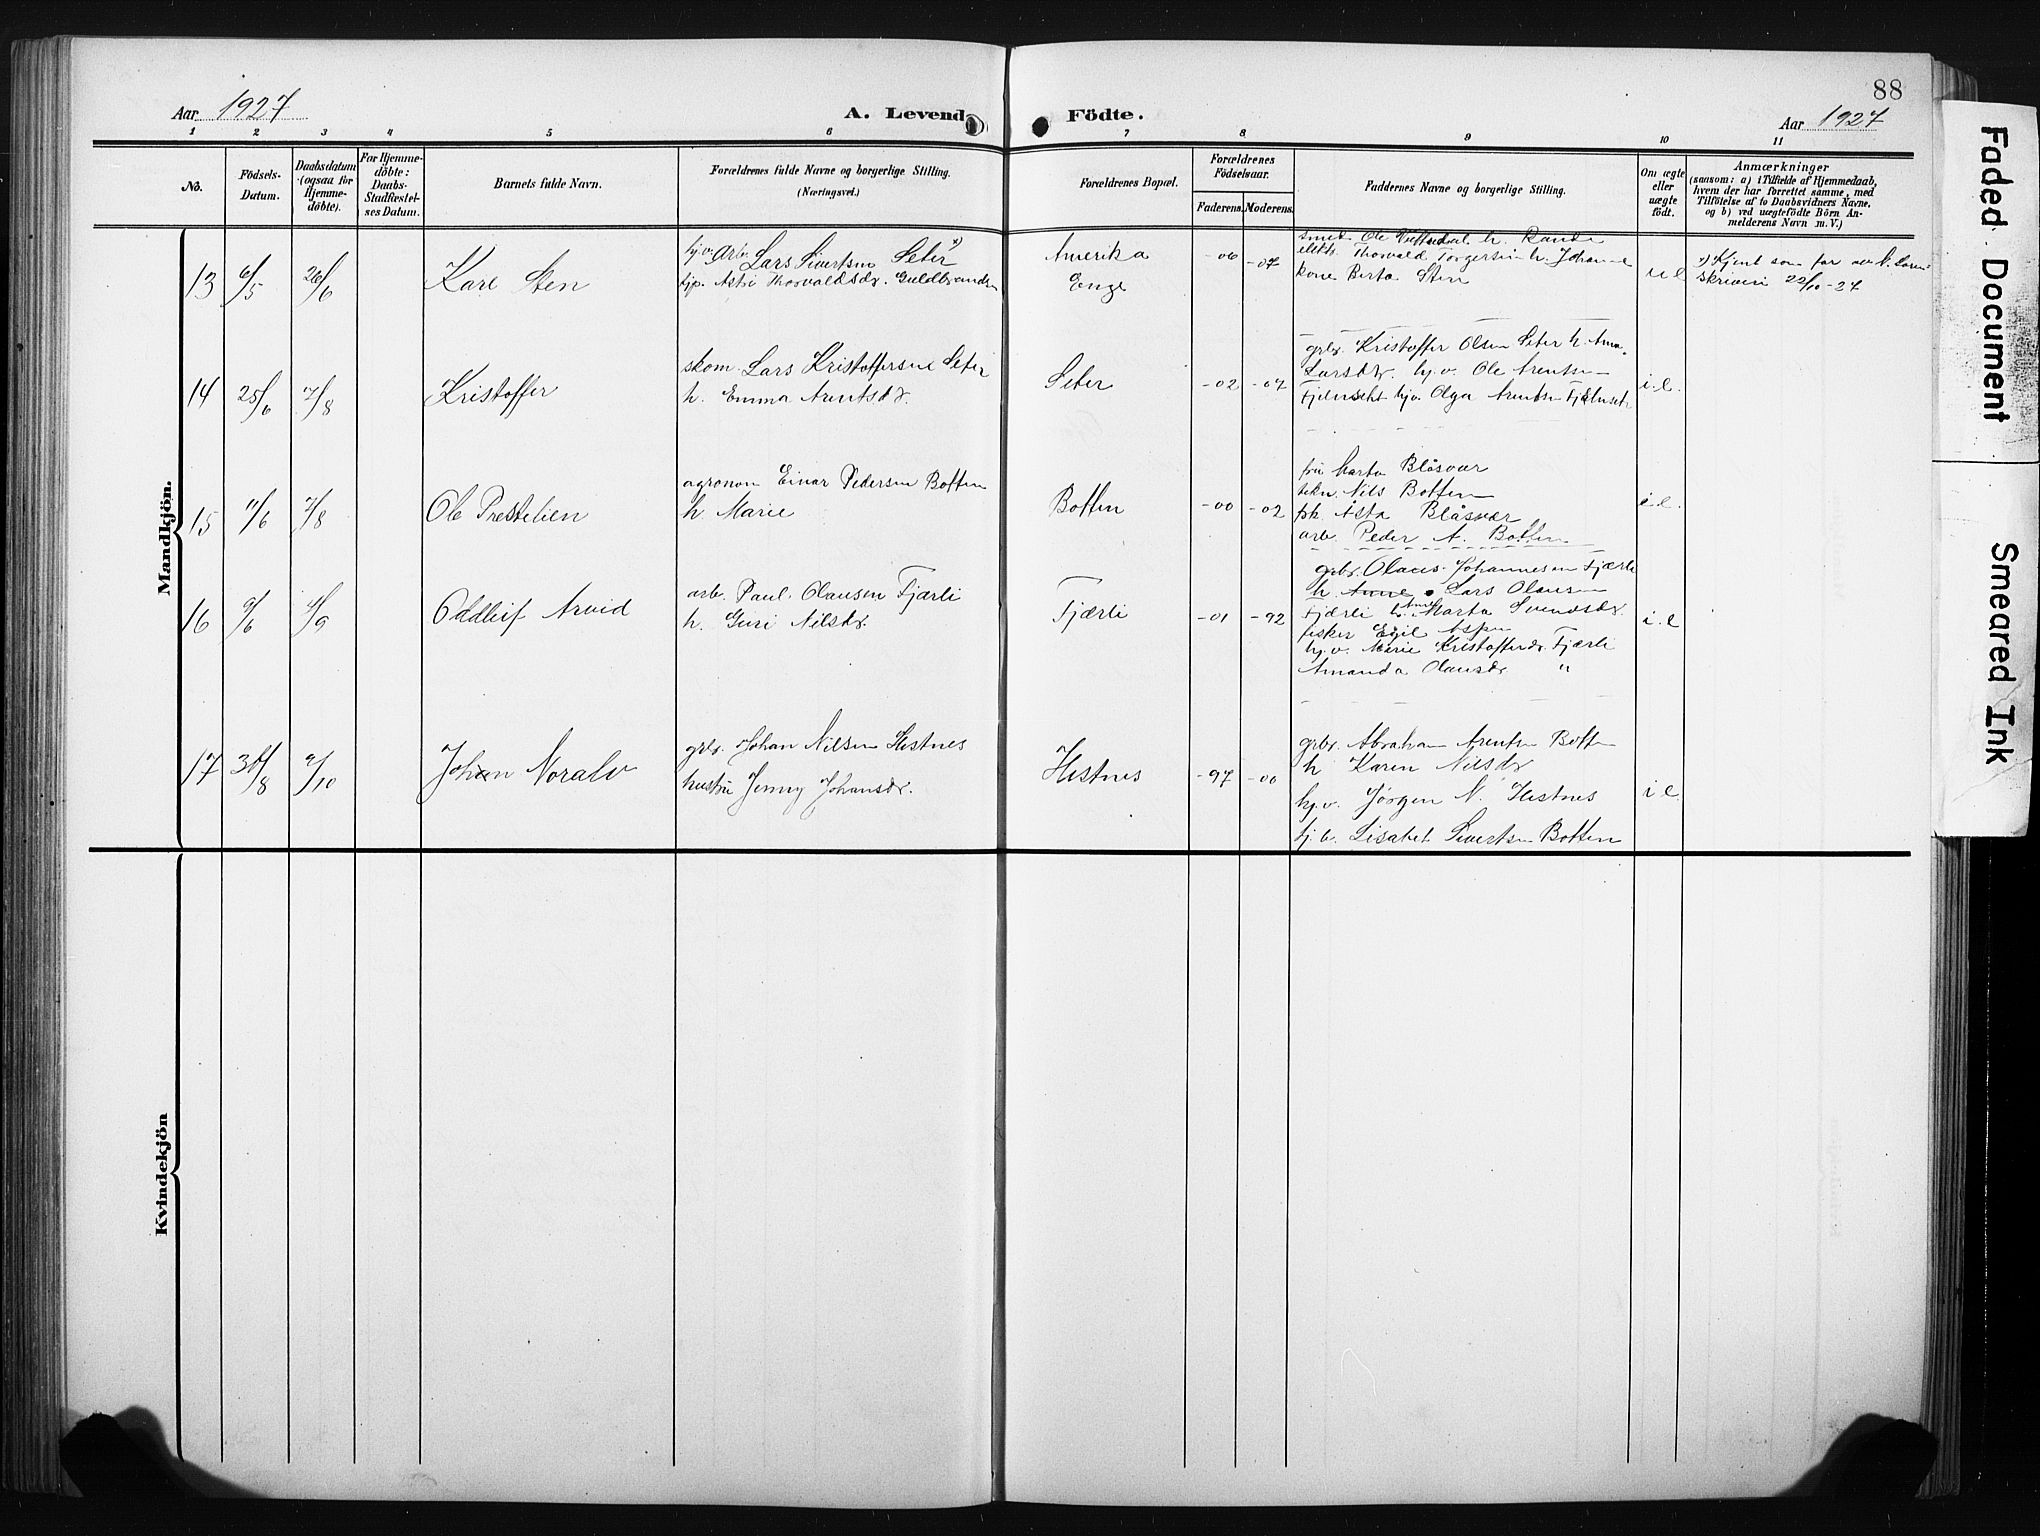 88
Aar 1927
A. Levende
Födte.
Aar 1927
1 2 3 4 5 6 7 8 9 10 11
No.
Födsels-
Datum.
Daabsdatum
(ogsaa for
Hjemme-
döbte).
For Hjemme-
döbte:
Daabs-
Stadfæstel-
ses Datum.
Barnets fulde Navn.
Forældrenes fulde Navne og borgerlige Stilling.
(Næringsvei.)
Forældrenes Bopæl.
Forældrenes
Födselsaar.
Faderens. Moderens.
Faddernes Navne og borgerlige Stilling.
Om ægte
eller
uægte
födt.
Anmærkninger
(saasom: a) i Tilfælde af Hjemmedaab,
hvem der har forrettet samme, med
Tilföielse af to Daabsvidners Navne,
og b) ved uægtefödte Börn An-
melderens Navn m. V.)
Mandkjön.
13 6/5 26/6
Kare Sten
Arb. Lars Sivertsen Seter x)
tjp. Astri Thorvaldsdr. Guldbrandsen
Amerika
Enge
-06 -07
smed Ole h. Randi
Thorvald Torgersen h. Johanne
kone Berta Sten
u e
x) Kjent som far av
skriveri 22/10-27
14 25/6 7/8
Kristoffer
skom. Lars Kristoffersen Seter
h. Emma Arentsdr.
Seter
-02 -07
grbr. Kristoffer Olsen Seter h. Ana
Larsdr. hj.v. Ole Arentsen
Fjelnset hjv. Olga Arentsen Fjelnset
i.e.
15 11/6 7/8
Ole Prestelien
agronom Einar Pedersen Botten
h. Marie
Botten
-00 -02
fru Marta Blåsvær
tekn. Nils Botten
pk. Asta Blåsvær
arb. Peder A. Botten
i.e.
16 9/6 4/9
Oddleif Arvid
arb. Paul Olausen Fjærli
h. Guri Nilsdr.
Fjærli
-01 -92
grbr. Olaus Johannesen Fjærli
h. Anne Lars Olausen
Fjærli h. Ane Marta Svendsdr.
fisker Egil Aspen
hj.v. Marie Kristoffersdr. Fjærli
Amanda Olausdr "
i.e
17 30/8 9/10
Johan Noralv
grbr. Johan Nilsen Hestnes
hustru Jenny Johansdr.
Hestnes
-97 -00
grbr. Abraham Arentsen Botten
h Karen Nilsdr
hj.v. Jørgen N. Hestnes
hj.v. Lisabet Sivertsen Botten
i e.
Kvindekjön
Faded Document
Smeared Ink